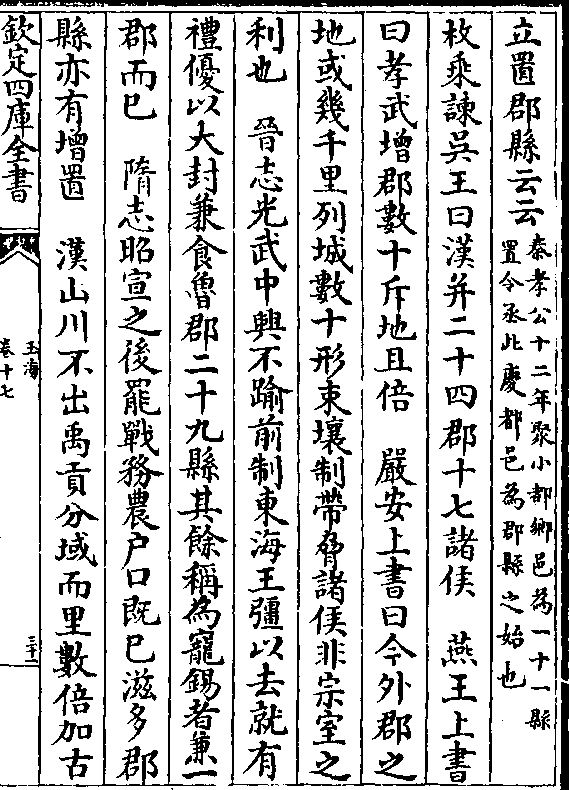 立置郡縣云云秦孝公十二年聚小都鄉邑為一十一縣
置令丞此廢都邑為郡縣之始也
枚乘諫吳王曰漢并二十四郡十七諸侯　燕王上書
曰孝武增郡數十斥地且倍　嚴安上書曰今外郡之
地或幾千里列城數十形束壤制帶脅諸侯非宗室之
利也　晉志光武中興不踰前制東海王彊以去就有
禮優以大封兼食魯郡二十九縣其餘稱為寵錫者兼一
郡而已　隋志昭宣之後罷戰務農户口既已滋多郡
縣亦有增置　漢山川不出禹貢分域而里數倍加古
欽定四庫全書
玉海
卷十七
三十二